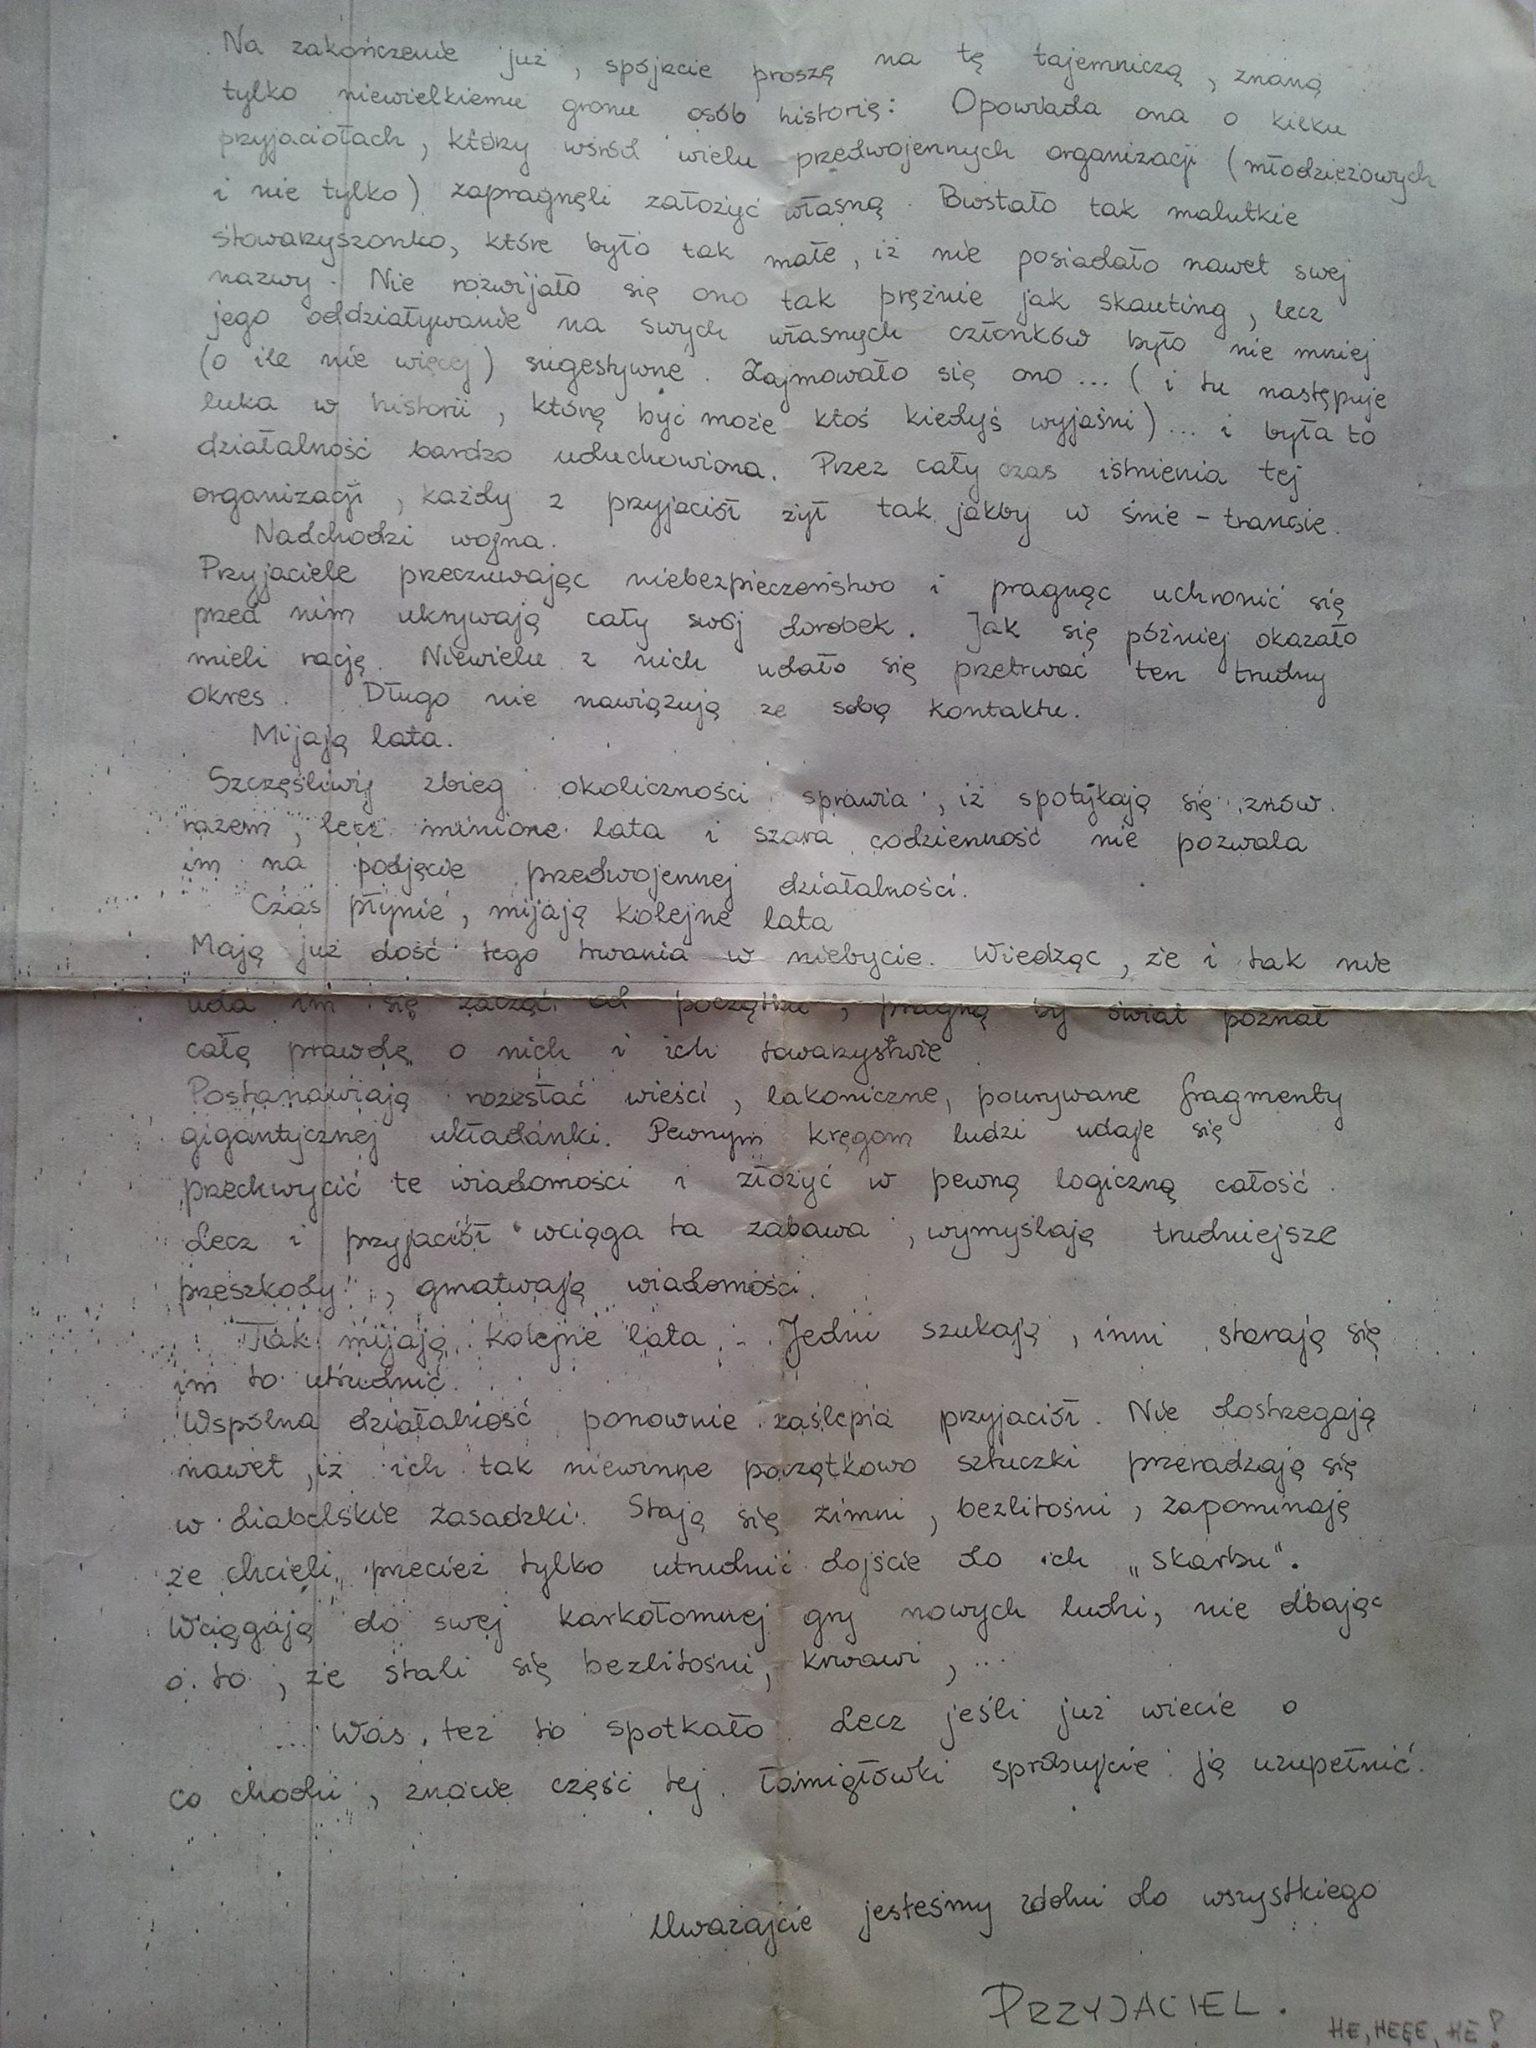 Na zakończenie już, spójrzcie proszę na tę tajemniczą, znaną
tylko niewielkiemu gronu osób historię: Opowiada ona o kilku
przyjaciołach, który wśród wielu przedwojennych organizacji (młodzieżowych
i nie tylko) zapragnęli założyć własną. Powstało tak malutkie
stowarzyszonko, które było tak małe, iż nie posiadało nawet swej
nazwy. Nie rozwijało się ono tak prężnie jak skauting, lecz
jego oddziaływanie na swych własnych członków było nie mniej
(o ile nie więcej) sugestywne. Zajmowało się ono... (i tu następuje
luka w historii, którą być może ktoś kiedyś wyjaśni)... i była to
działalność bardzo uduchowiona. Przez cały czas istnienia tej
organizacji, każdy z przyjaciół żył tak jakby w śnie - transie.
Nadchodzi wojna.
Przyjaciele przeczuwając niebezpieczeństwo i pragnąc uchronić się
przed nim ukrywają cały swój dorobek. Jak się później okazało
mieli rację. Niewielu z nich udało się przetrwać ten trudny
okres. Długo nie nawiązują ze sobą kontaktu.
Mijają lata.
Szczęśliwy zbieg okoliczności sprawia, iż spotykają się znów
razem, lecz minione lata i szara codzienność nie pozwala
im na podjęcie przedwojennej działalności.
Czas płynie, mijają kolejne lata
Mają już dość tego trwania w niebycie. Wiedząc, że i tak nie
uda im się zacząć od początku, pragną by świat poznał
całą prawdę o nich i ich towarzystwie.
Postanawiają rozesłać wieści, lakoniczne, pourywane fragmenty
gigantycznej układanki. Pewnym kręgom ludzi udaje się
przechwycić te wiadomości i złożyć w pewną logiczną całość.
Lecz i przyjaciół wciąga ta zabawa, wymyślają trudniejsze
przeszkody, gmatwają wiadomości.
Tak mijają kolejne lata. Jedni szukają, inni starają się
im to utrudnić.
Wspólna działalność ponownie zaślepia przyjaciół. Nie dostrzegają
nawet, iż ich tak niewinne początkowo sztuczki przeradzają się
w diabelskie zasadzki. Stają się zimni, bezlitośni, zapominają
że chcieli przecież tylko utrudnić dojście do ich „skarbu".
Wciągają do swej karkołomnej gry nowych ludzi, nie dbając
o to, że stali się bezlitośni, krwawi, ...
... Was też to spotkało. Lecz jeśli już wiecie o
co chodzi, znacie część tej łamigłówki spróbujcie ją uzupełnić.
Uważajcie jesteśmy zdolni do wszystkiego
PRZYJACIEL.
HE, HEEE, HE!